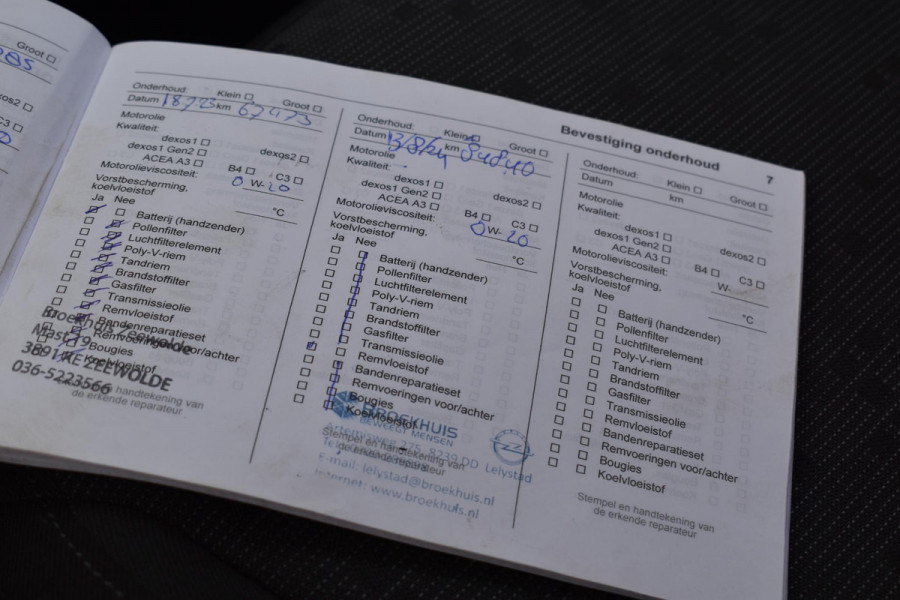 Groot
Bevestiging onderhoud
7
Onderhoud: Klein Groot
Datum 18723 km 67473
Motorolie
Kwaliteit:
dexos1 dexos2
dexos1 Gen2
ACEA A3 B4 C3
Motorolieviscositeit: 0 W-20
Vorstbescherming,
koelvloeistof °C
Ja Nee
Batterij (handzender)
Pollenfilter
Luchtfilterelement
Poly-V-riem
Tandriem
Brandstoffilter
Gasfilter
Transmissieolie
Remvloeistof
Bandenreparatieset
Remvoeringen voor/achter
Bougies
Koelvloeistof
Broekhuis Zeewolde
3891 KE ZEEWOLDE
036-5223566
Stempel en handtekening van
de erkende reparateur
Onderhoud: Klein Groot
Datum 13/8/24 km 84840
Motorolie
Kwaliteit:
dexos1 dexos2
dexos1 Gen2
ACEA A3 B4 C3
Motorolieviscositeit: 0 W-20
Vorstbescherming,
koelvloeistof °C
Ja Nee
Batterij (handzender)
Pollenfilter
Luchtfilterelement
Poly-V-riem
Tandriem
Brandstoffilter
Gasfilter
Transmissieolie
Remvloeistof
Bandenreparatieset
Remvoeringen voor/achter
Bougies
Koelvloeistof
BROEKHUIS
BEWEEGT MENSEN
275, 8239 DD Lelystad
Stempel en handtekening van
de erkende reparateur
E-mail: lelystad@broekhuis.nl
Internet: www.broekhuis.nl
Onderhoud: Klein Groot
Datum km
Motorolie
Kwaliteit:
dexos1 dexos2
dexos1 Gen2
ACEA A3 B4 C3
Motorolieviscositeit: W-
Vorstbescherming,
koelvloeistof °C
Ja Nee
Batterij (handzender)
Pollenfilter
Luchtfilterelement
Poly-V-riem
Tandriem
Brandstoffilter
Gasfilter
Transmissieolie
Remvloeistof
Bandenreparatieset
Remvoeringen voor/achter
Bougies
Koelvloeistof
Stempel en handtekening van
de erkende reparateur